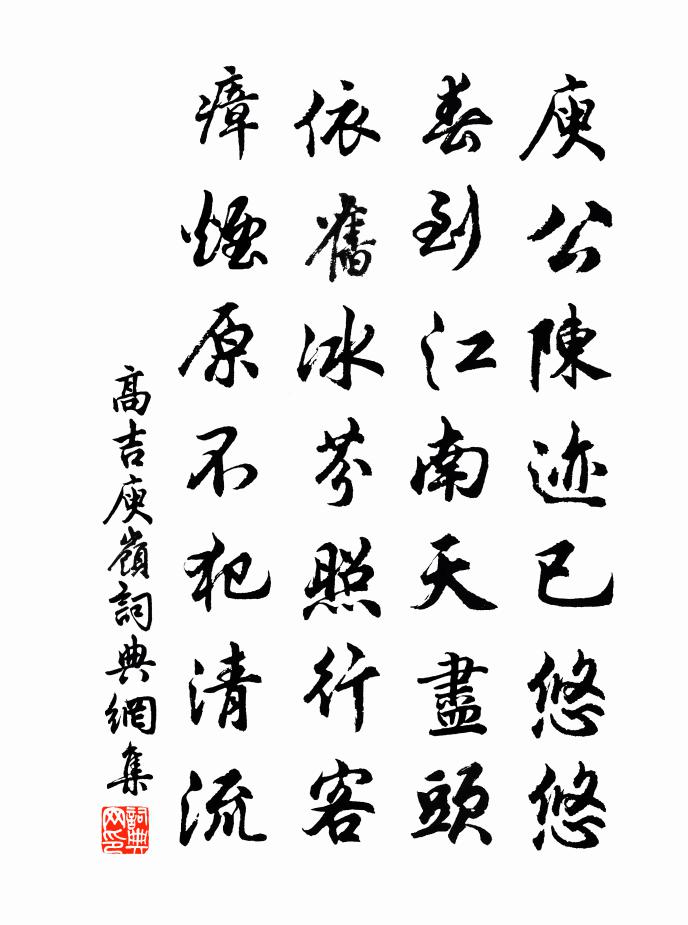 庾公陳迹已悠悠
春到江南天盡頭
依舊冰芬照行客
瘴煙原不犯清流
高吉庾嶺詞典網集
詞典网印